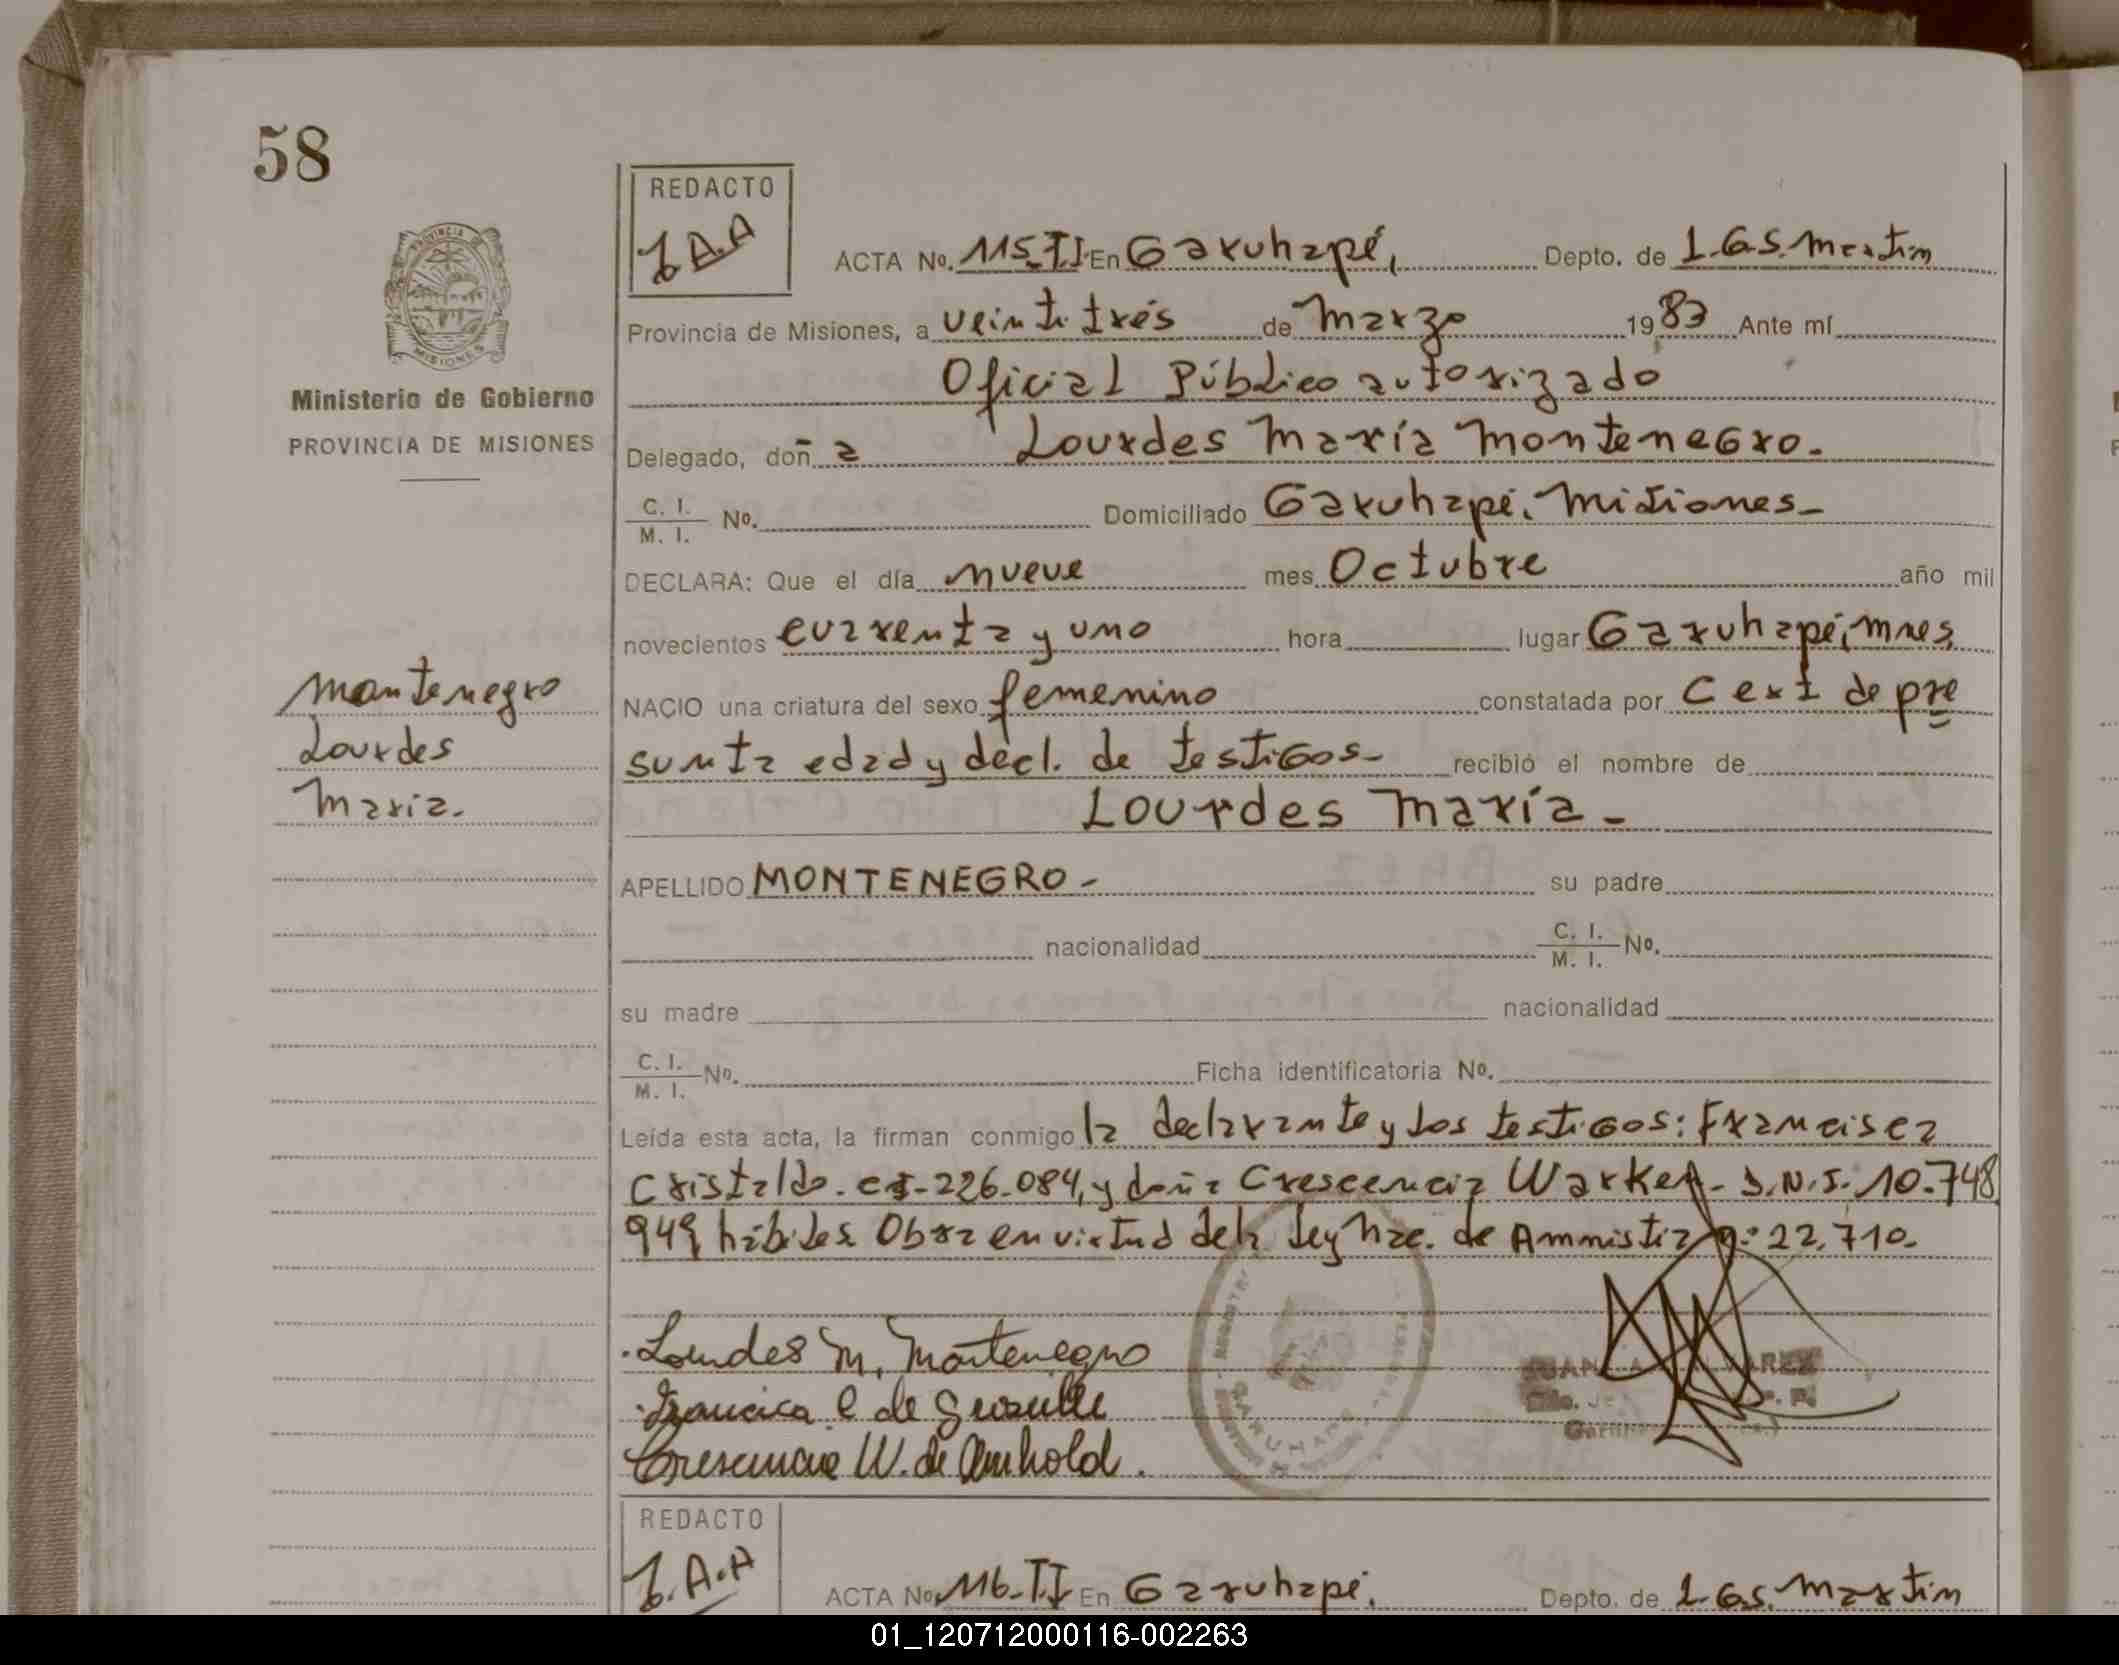 58
REDACTO
J.A.A
ACTA No. 115-II En Garuhapé, Depto. de L.G.S. Martin
Provincia de Misiones, a veintitrés de Marzo 1983 Ante mí
Oficial Público autorizado
Delegado, doñ a Lourdes María Montenegro.
C. I.
M. I. No. Domiciliado Garuhapé. Misiones-
DECLARA: Que el día nueve mes Octubre año mil
novecientos cuarenta y uno hora lugar Garuhapé, Mnes.
NACIO una criatura del sexo femenino constatada por Cert de pre
sunta edad y decl. de testigos- recibió el nombre de
Lourdes María-
APELLIDO MONTENEGRO- su padre
nacionalidad C. I.
M. I. No.
su madre nacionalidad
C. I.
M. I. No. Ficha identificatoria No.
Leída esta acta, la firman conmigo la declarante y los testigos: Francisca
Cristaldo. CI-226.084, y doña Crescencia Warken- D.N.I. 10.748
949 hábiles. Obra en virtud de la Ley Nac. de Ammistia nº: 22.710.
Lourdes M. Montenegro
Francisca C de
Crescencia W. de Arnhold.
PROVINCIA DE
MISIONES
Ministerio de Gobierno
PROVINCIA DE MISIONES
Montenegro
Lourdes
Maria.
GARUHAPE
REDACTO
J.A.A
ACTA No. 116-II En Garuhapé. Depto. de L.G.S. Martin
01_120712000116-002263